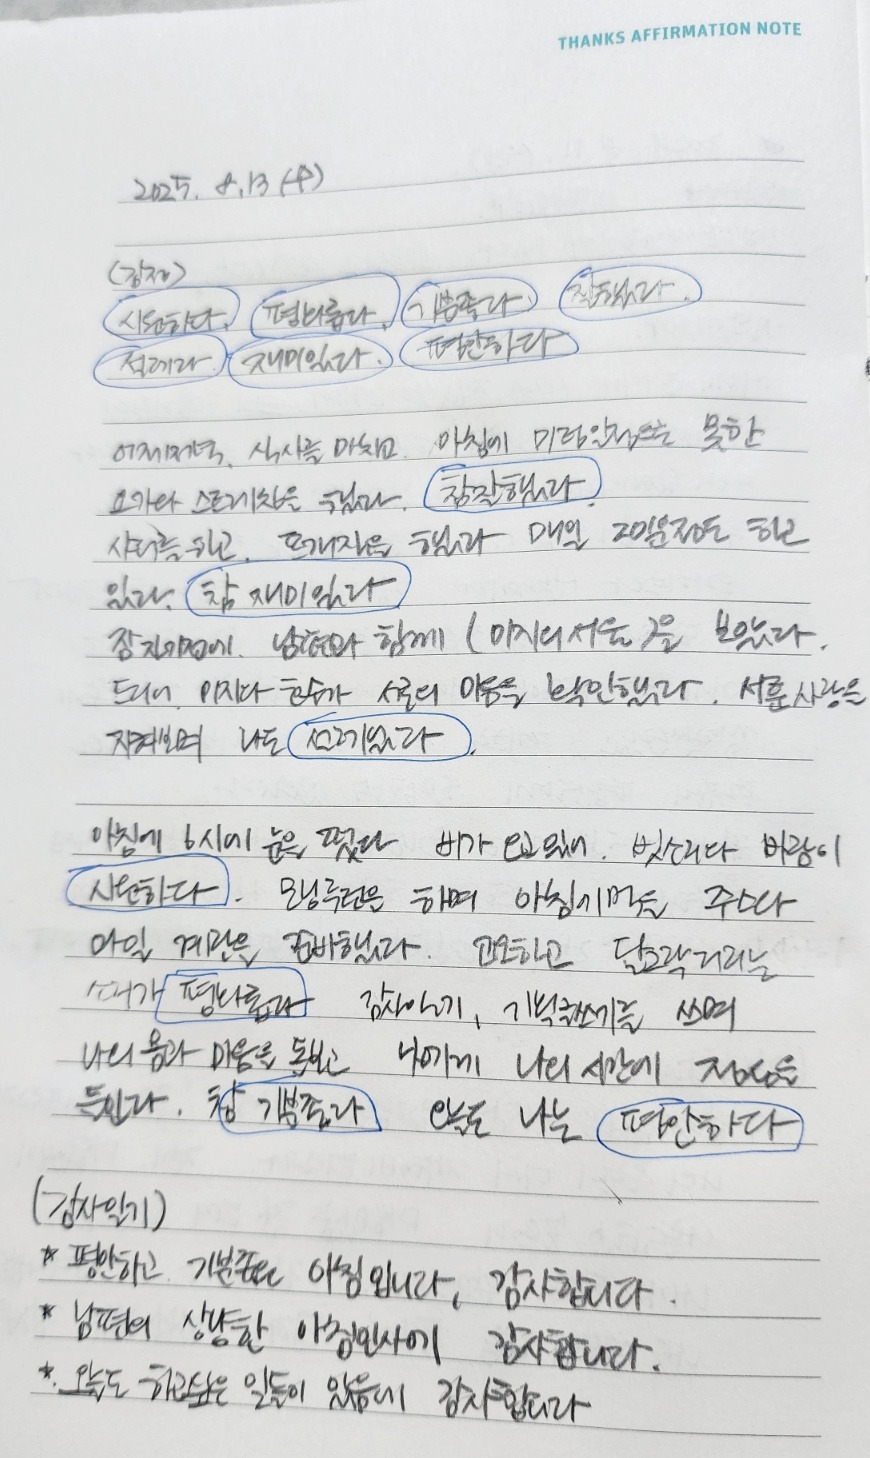 THANKS AFFIRMATION NOTE
2025. 8. 13 (수)
(감정)
시원하다. 평화롭다. 기분좋다. 잘했다.
설레다. 재미있다. 평안하다
어제저녁, 식사를 마치고. 아침에 못한
요가와 스트레칭을 했다. 참잘했다
샤워를 하고, 뜨개질을 했다 매일 20분정도 하고
있다. 참 재미있다
잠자기전에. 남편와 함께 (미지의 서울)을 보았다.
드디어, 미지와 호수가 서로의 마음을 확인했다. 서툰 사랑을
지켜보며 나도 설레었다.
아침에 6시에 눈을 떴다 비가 오고 있어. 빗소리와 바람이
시원하다. 모닝루틴을 하며 아침기먹을 주스와
과일 계란을 준비했다. 고요하고 달그락거리는
소리가 평화롭다 감사일기, 기적글쓰기를 쓰며
나의 몸과 마음을 돌보고 나에게 나의 시간에 정성을
들인다. 참 기분좋다 오늘도 나는 평안하다
(감사일기)
* 평안하고 기분좋은 아침입니다, 감사합니다.
* 남편의 상냥한 아침인사에 감사합니다.
* 오늘도 하고싶은 일들이 있음에 감사합니다